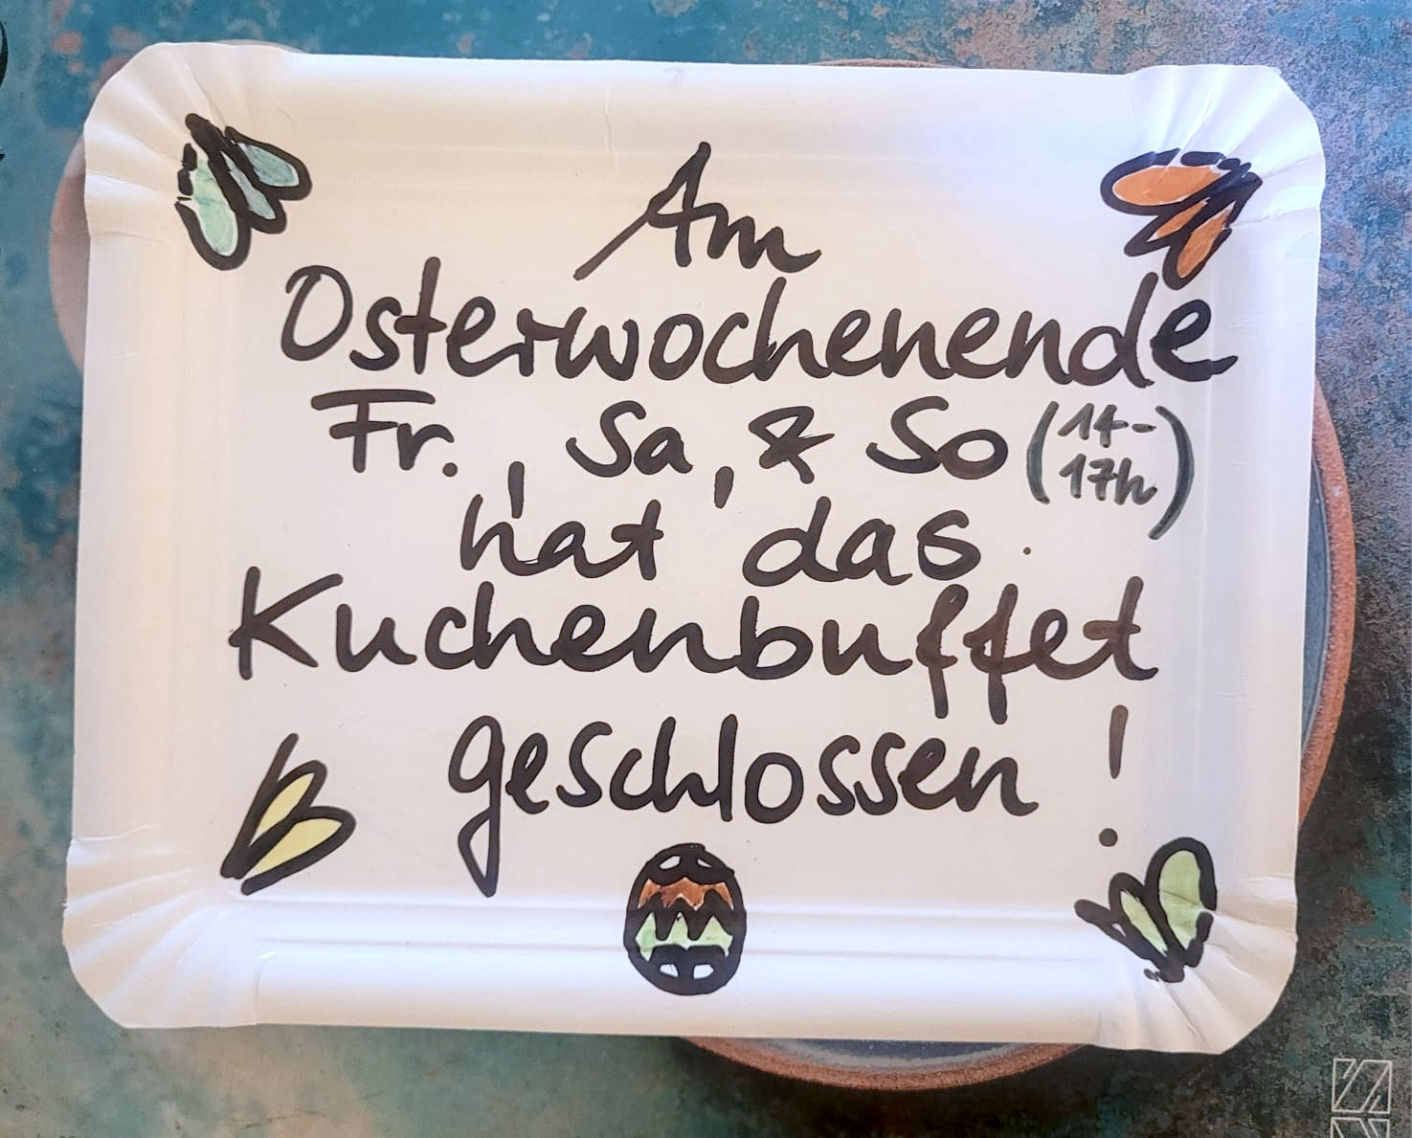 Am
Osterwochenende
Fr., Sa, & So (14-
17h)
hat das
Kuchenbuffet
geschlossen!